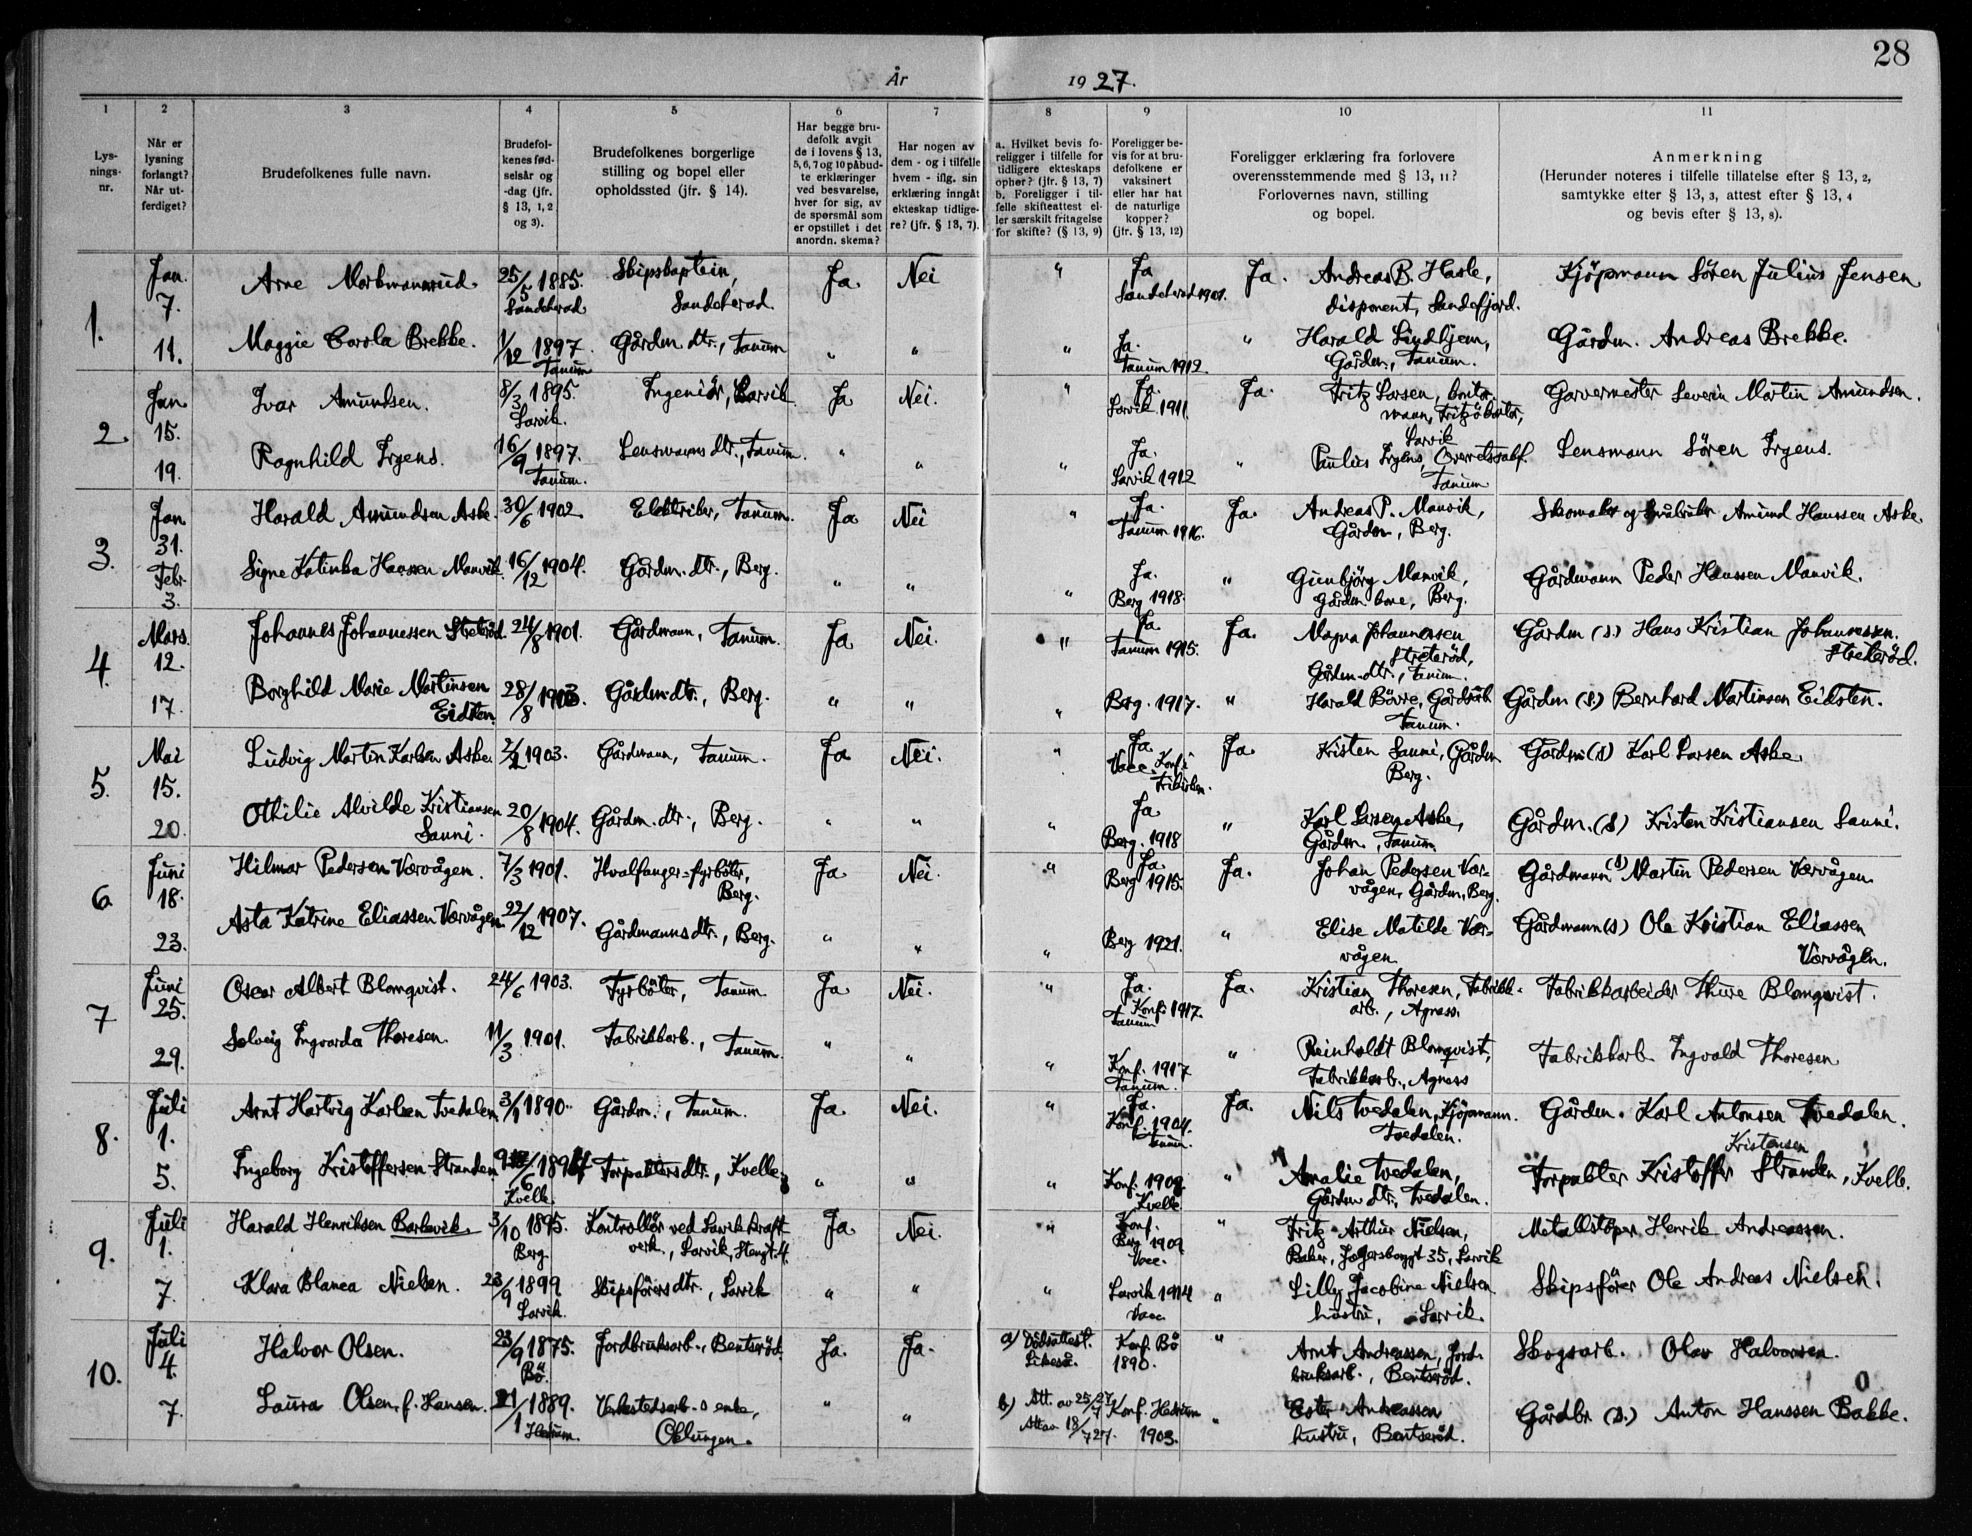 28
År 1927.
1 2 3 4 5 6 7 8 9 10 11
Lys-
nings-
nr.
Når er
lysning
forlangt?
Når ut-
ferdiget?
Brudefolkenes fulle navn.
Brudefol-
kenes fød-
selsår og
-dag (jfr.
§ 13, 1, 2
og 3).
Brudefolkenes borgerlige
stilling og bopel eller
opholdssted (jfr. § 14).
Har begge bru-
defolk avgit
de i lovens § 13,
5, 6, 7 og 10 påbud-
te erklæringer
ved besvarelse,
hver for sig, av
de spørsmål som
er opstillet i det
anordn. skema?
Har nogen av
dem - og i tilfelle
hvem - iflg. sin
erklæring inngåt
ekteskap tidlige-
re? (jfr. § 13, 7).
a. Hvilket bevis fo-
religger i tilfelle for
tidligere ekteskaps
ophør? (jfr. § 13, 7)
b. Foreligger i til-
felle skifteattest el-
ler særskilt fritagelse
for skifte? (§ 13, 9)
Foreligger be-
vis for at bru-
defolkene er
vaksinert
eller har hat
de naturlige
kopper?
(jfr. § 13, 12)
Foreligger erklæring fra forlovere
overensstemmende med § 13, 11?
Forlovernes navn, stilling
og bopel.
Anmerkning
(Herunder noteres i tilfelle tillatelse efter § 13, 2,
samtykke efter § 13, 3, attest efter § 13, 4
og bevis efter § 13, 8).
1. Jan. 7. Arne Markmannrud. 25/5 1885. Sandeherad Skipskaptein, Sandeherad Ja Nei " Ja Sandeherad 1901. Ja. Andreas B. Hasle, disponent, Sandefjord. Kjøpmann Sören Julius Jensen
11. Maggie Carola Brekke. 1/12 1897. Tanum Gårdm. dtr., Tanum " " " Ja. Tanum 1912. " Harald Lindhjem, Gårdm., Tanum. Gårdm. Andreas Brekke.
2. Jan 15. Ivar Amundsen. 8/3 1895. Larvik. Ingeniör, Larvik Ja Nei. " Ja. Larvik 1911. Ja. Fritz Larsen, kontormann, Fritzö kontor, Larvik Garvermester Severin Martin Amundsen.
19. Ragnhild Irgens. 16/9 1897. Tanum. Lensmanns dtr., Tanum. " " " Ja. Larvik 1912 " Paulus Irgens, Overretssakf. Tanum Lensmann Sören Irgens.
3. Jan 31. Harald Amundsen Aske. 30/6 1902. Elektriker, Tanum. Ja Nei " Ja. Tanum 1916. Ja. Andreas P. Manvik, Gårdm, Berg. Skomaker og småbruker Amund Hanssen Aske.
Febr. 3. Signe Katinka Hansen Manvik. 16/12 1904. Gårdm. dtr., Berg. " " " Ja. Berg 1918. " Gunbjörg Manvik, Gårdm. kone, Berg. Gårdmann Peder Hanssen Manvik.
4. Mars. 12. Johannes Johannessen Streteröd 24/8 1901. Gårdmann, Tanum. Ja Nei. " Ja. Tanum 1915. Ja. Magna Johannessen Streteröd, Gårdm. dtr., Tanum. Gårdm (d.) Hans Kristian Johannessen. Streteröd.
17. Borghild Marie Martinsen Eidsten. 28/8 1903. Gårdm. dtr., Berg. " " " Berg. 1917. " Harald Bövre, Gårdbr. Tanum. Gårdm (d.) Bernhard Martinsen Eidsten.
5. Mai 15. Ludvig Martin Karlsen Aske. 2/2 1903. Gårdmann, Tanum. Ja Nei. " Ja Vacc. Konf. i frikirken. Ja Kristen Sauni, Gårdm Berg. Gårdm (d) Karl Larsen Aske.
20. Othilie Alvilde Kristiansen Sauni. 20/8 1904. Gårdm. dtr., Berg. " " " Ja Berg. 1918 " Karl Larsen Aske, Gårdm., Tanum. Gårdm. (d) Kristen Kristiansen Sauni.
6 Juni 18. Hilmar Pedersen Værvågen. 7/3 1901. Hvalfanger-fyrböter, Berg. Ja Nei. " Ja. Berg 1915. Ja. Johan Pedersen Værvågen, Gårdm, Berg. Gårdmann (d) Martin Pedersen Værvågen.
23. Asta Katrine Eliassen Værvågen 22/12 1907. Gårdmanns dtr., Berg. " " " Berg 1921. " Elise Matilde Værvågen Gårdmann (d) Ole Kristian Eliassen Værvågen.
7 Juni 25. Oscar Albert Blomqvist. 24/6 1903. Fyrböter, Tanum. Ja Nei. " Ja. Konf. 1917. Tanum Ja. Kristian Thoresen, Fabrikkarb., Agnes. Fabrikkarbeider Thure Blomqvist.
29. Solveig Ingvarda Thoresen. 11/3 1901. Fabrikkarb., Tanum. " " " Konf. 1917 Tanum. " Reinholdt Blomqvist, Fabrikkarb., Agnes Fabrikkarb. Ingvald Thoresen
8. Juli 1. Arnt Hartvig Karlsen Tvedalen 3/9 1890. Gårdm., Tanum. Ja. Nei. " Ja. Konf. 1904. Tanum. Ja. Nils Tvedalen, Kjöpmann. Tvedalen. Gårdm. Karl Antonsen Tvedalen.
5. Ingeborg Kristoffersen Stranden 6/1894 Kvelle Forpakters dtr., Kvelle " " " Konf. 1909 Kvelle " Amalie Tvedalen, Gårdm dtr., Tvedalen. Forpakter Kristoffer Kristensen Stranden, Kvelle.
9. Juli 1. Harald Henriksen Barkevik 3/10 1895. Berg. Kontrollör ved Larvik kraftverk, Larvik, Stengt. 4. Ja. Nei. " Konf. Berg 1909 Vacc. " Fritz Arthur Nielsen, Baker, Jegersborggt 35, Larvik Metallstöper Henrik Andreassen.
7. Klara Blanca Nielsen. 23/9 1899 Larvik. Skipsförers dtr., Larvik " " " Larvik 1914 Vacc. " Lilly Jacobine Nielsen hustru, Larvik. Skipsförer Ole Andreas Nielsen.
10. Juli 4. Halvor Olsen. 23/9 1875. Bö. Jordbruksarb., Bentseröd. Ja. Ja. a) Dödsattest. Likeså. Konf. Bö 1890. " Arnt Andreassen, Jordbruksarb., Bentseröd. Skogsarb. Olav Halvorsen.
7. Laura Olsen, f. Hansen. 21/1 1889. Hedrum. Verkstedsarb.s enke, Oklungen. " " b) Att. av 25/7 27 Att av 18/7 27. Konf. Hedrum 1903. " Ester Andreassen hustru, Bentseröd. Gårdbr (d.) Anton Hanssen Bakke.